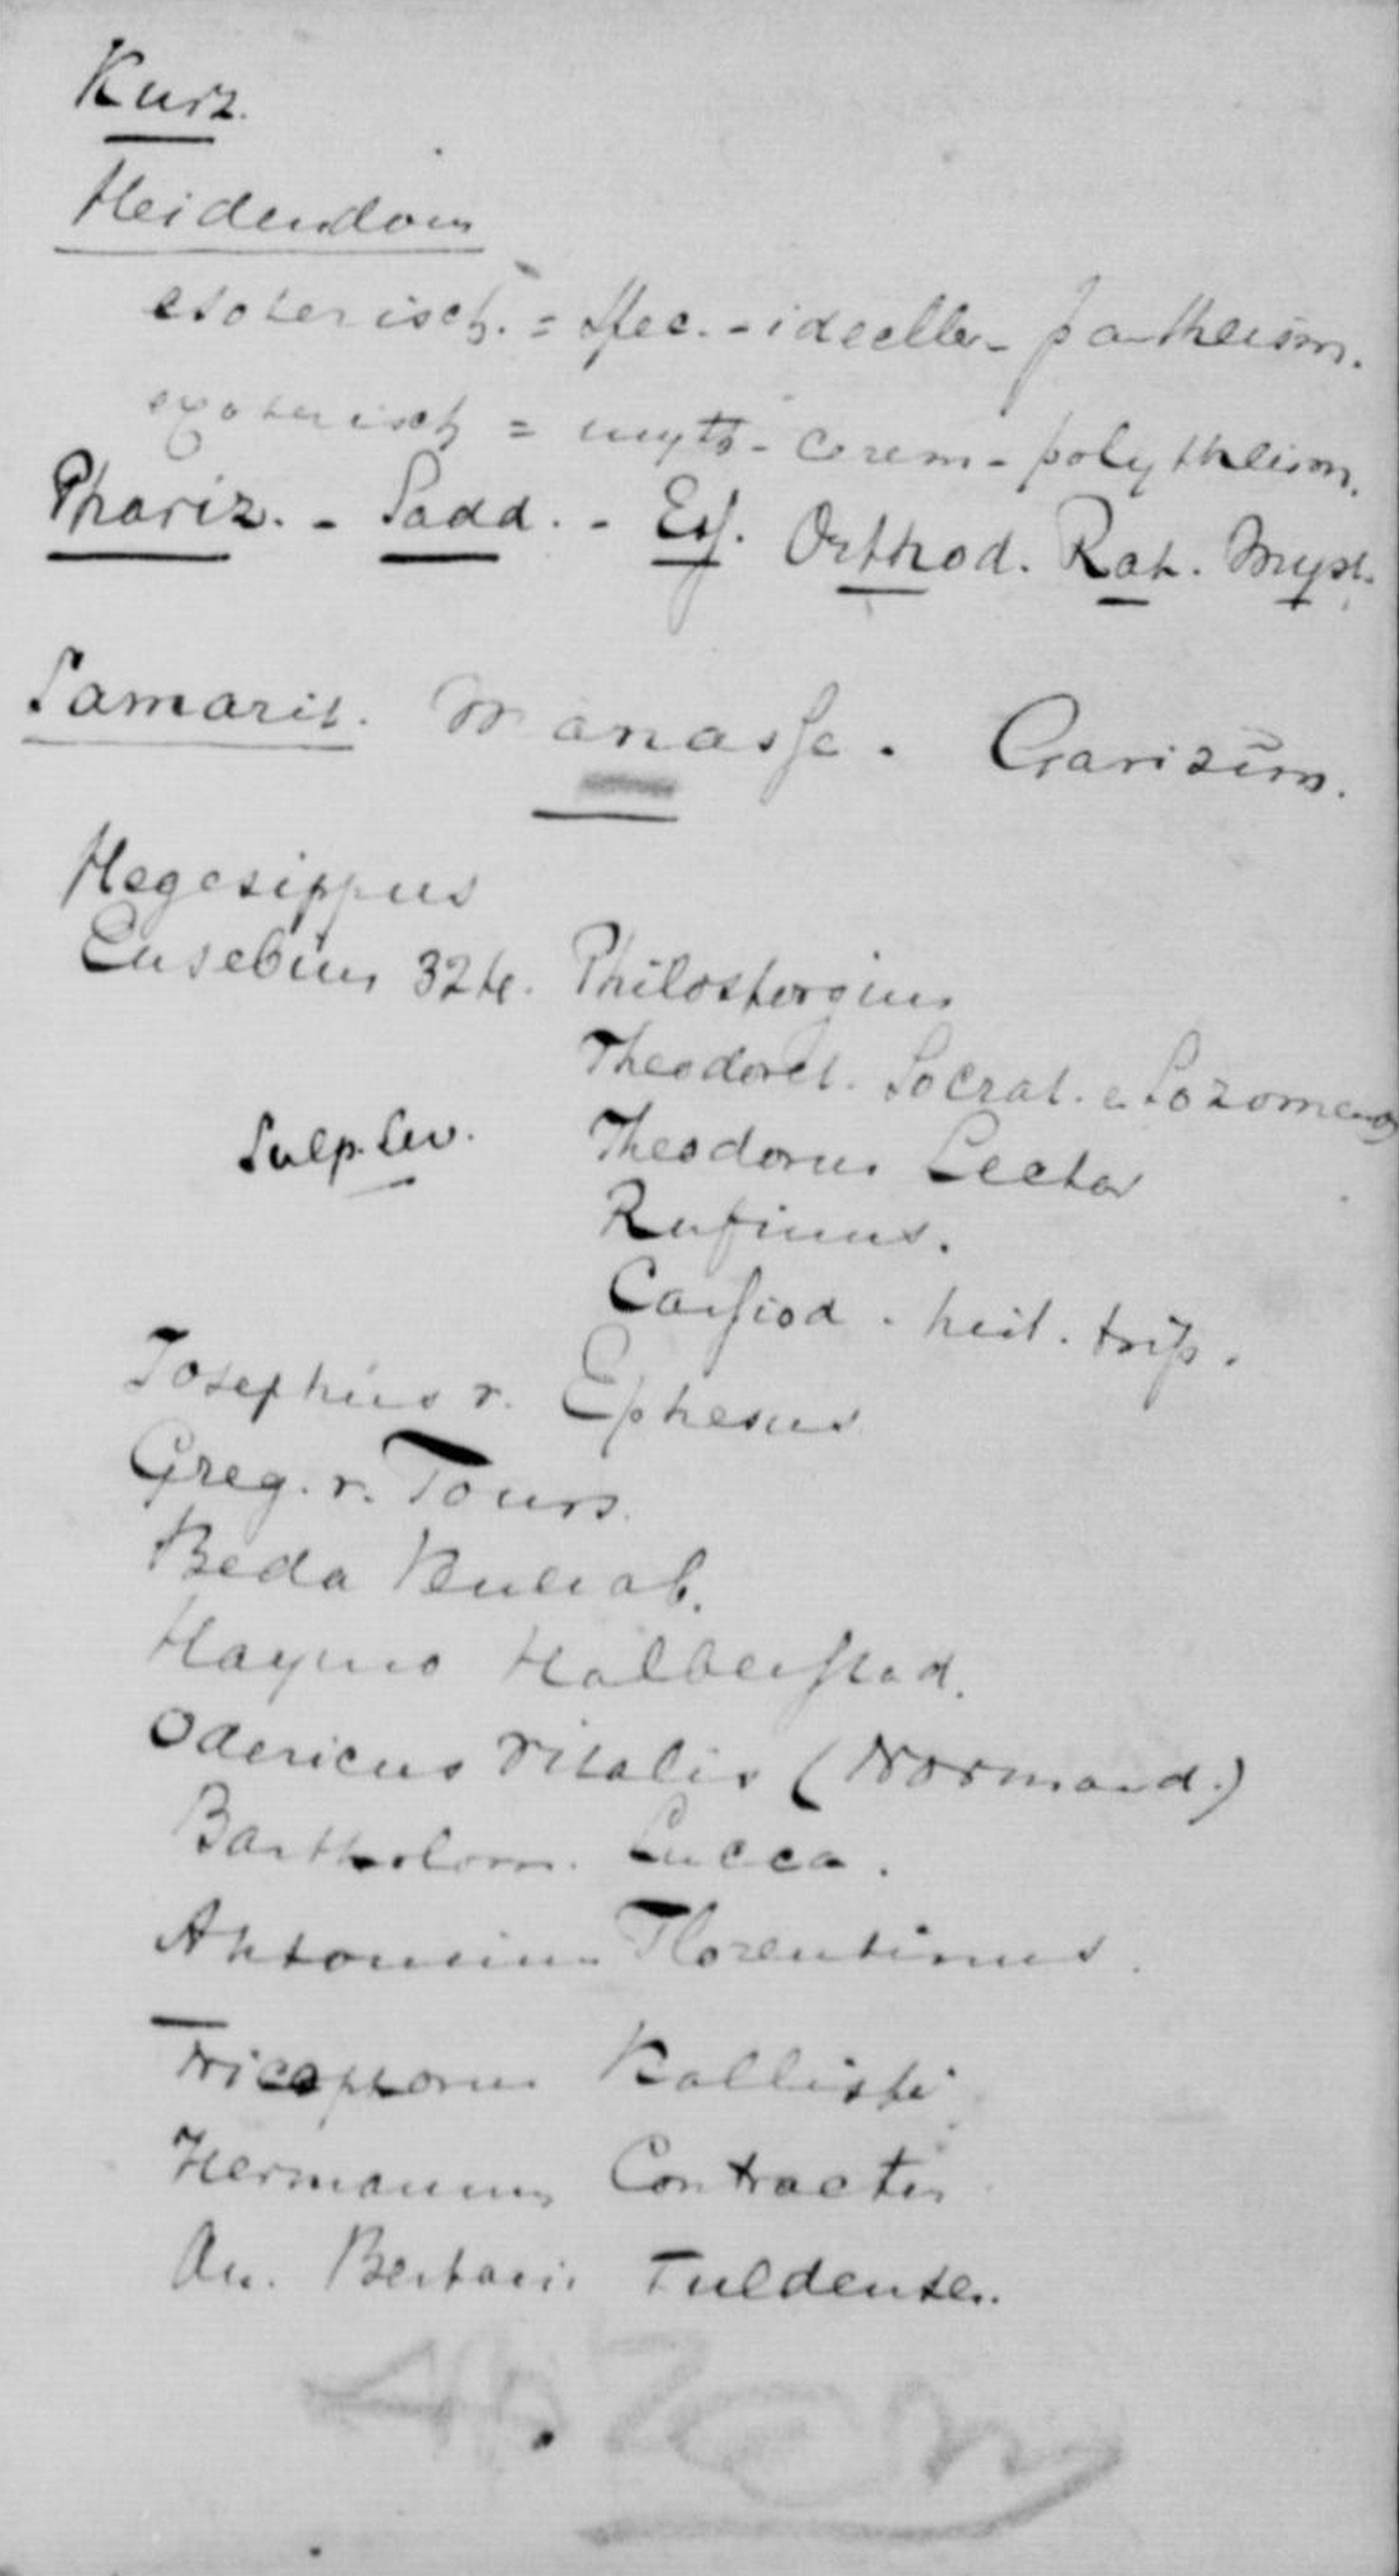 Kurz.
Heidendom
esoterisch. = spec. - ideeller - pantheism.
exoterisch = myth - cerem - polytheism.
Phariz. - Sadd. - Ess. Orthod. Rat. Myst.
Samarit. Manasse. Garizim.
Hegesippus
Eusebius 324. Philostorgius
Theodoret. Socrat. e. Sozomenos
Sulp. Sev. Theodorus Lector
Rufinus.
Cassiod. hist. trip.
Josephus v. Ephesus
Greg. v. Tours.
Beda Venerab.
Haymo Halberstad.
Odericus Vitalis (Normand.)
Bartholom. Lucca.
Antoninus Florentinus.
Nicephorus Kallisti
Hermannus Contractus
An. Bertani Fuldenses.